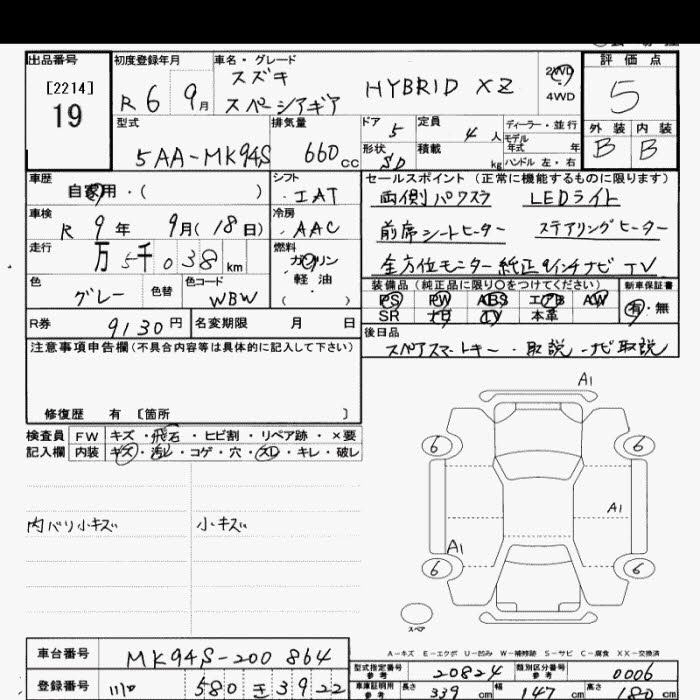 出品番号
[2214]
19
初度登録年月
R 6 9月
車名・グレード
スズキ
スペーシアギア
HYBRID XZ
2WD
4WD
評価点
5
外装 内装
B B
型式
5AA-MK94S
排気量
660cc
ドア 5
形状 5D
定員 4 人
積載 kg
ディーラー・並行
モデル年式 年
ハンドル 左・右
車歴
自家用・( )
車検
R 9 年 9月(18日)
走行
万5千038km
色
グレー
色替
色コード
WBW
シフト
IAT
冷房
AAC
燃料
ガソリン
軽油
( )
セールスポイント(正常に機能するものに限ります)
両側パワスラ LEDライト
前席シートヒーター ステアリングヒーター
全方位モニター 純正9インチナビ TV
装備品(純正品に限り○をつけてください)
PS PW ABS エアB AW
SR ナビ TV 本革
新車保証書
有・無
R券
9130円
名変期限 月 日
後日品
スペアスマートキー・取説・ナビ取説
注意事項申告欄(不具合内容等は具体的に記入して下さい)
修復歴 有 [箇所 ]
検査員記入欄
FW キズ・飛石・ヒビ割・リペア跡・×要
内装 キズ・汚レ・コゲ・穴・スレ・キレ・破レ
内バリ小キズ
小キズ
A1
6 6
A1
A1
6 6
スペア
A-キズ E-エクボ U-凹み W-補修跡 S-サビ C-腐食 XX-交換済
車台番号
MK94S-200864
登録番号
580 3922
型式指定番号 参考
20824
類別区分番号 参考
0006
車庫証明用 参考
長さ 339 cm 幅 147 cm 高さ 180 cm